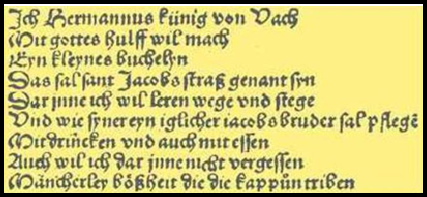 Ich Hermannus künig von Vach
Mit gottes hulff wil mach
Eyn kleynes buchelyn
Das sal sant Jacobs straß genant syn
Dar jnne ich wil leren wege vnd stege
Vnd wie syner eyn iglicher iacobs bruder sal pflegē
Mit drincken vnd auch mit essen
Auch wil ich dar jnne nicht vergessen
Mancherley bößheit die die kappůn triben